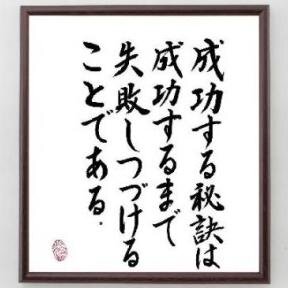 成功する秘訣は
成功するまで
失敗しつづける
ことである.